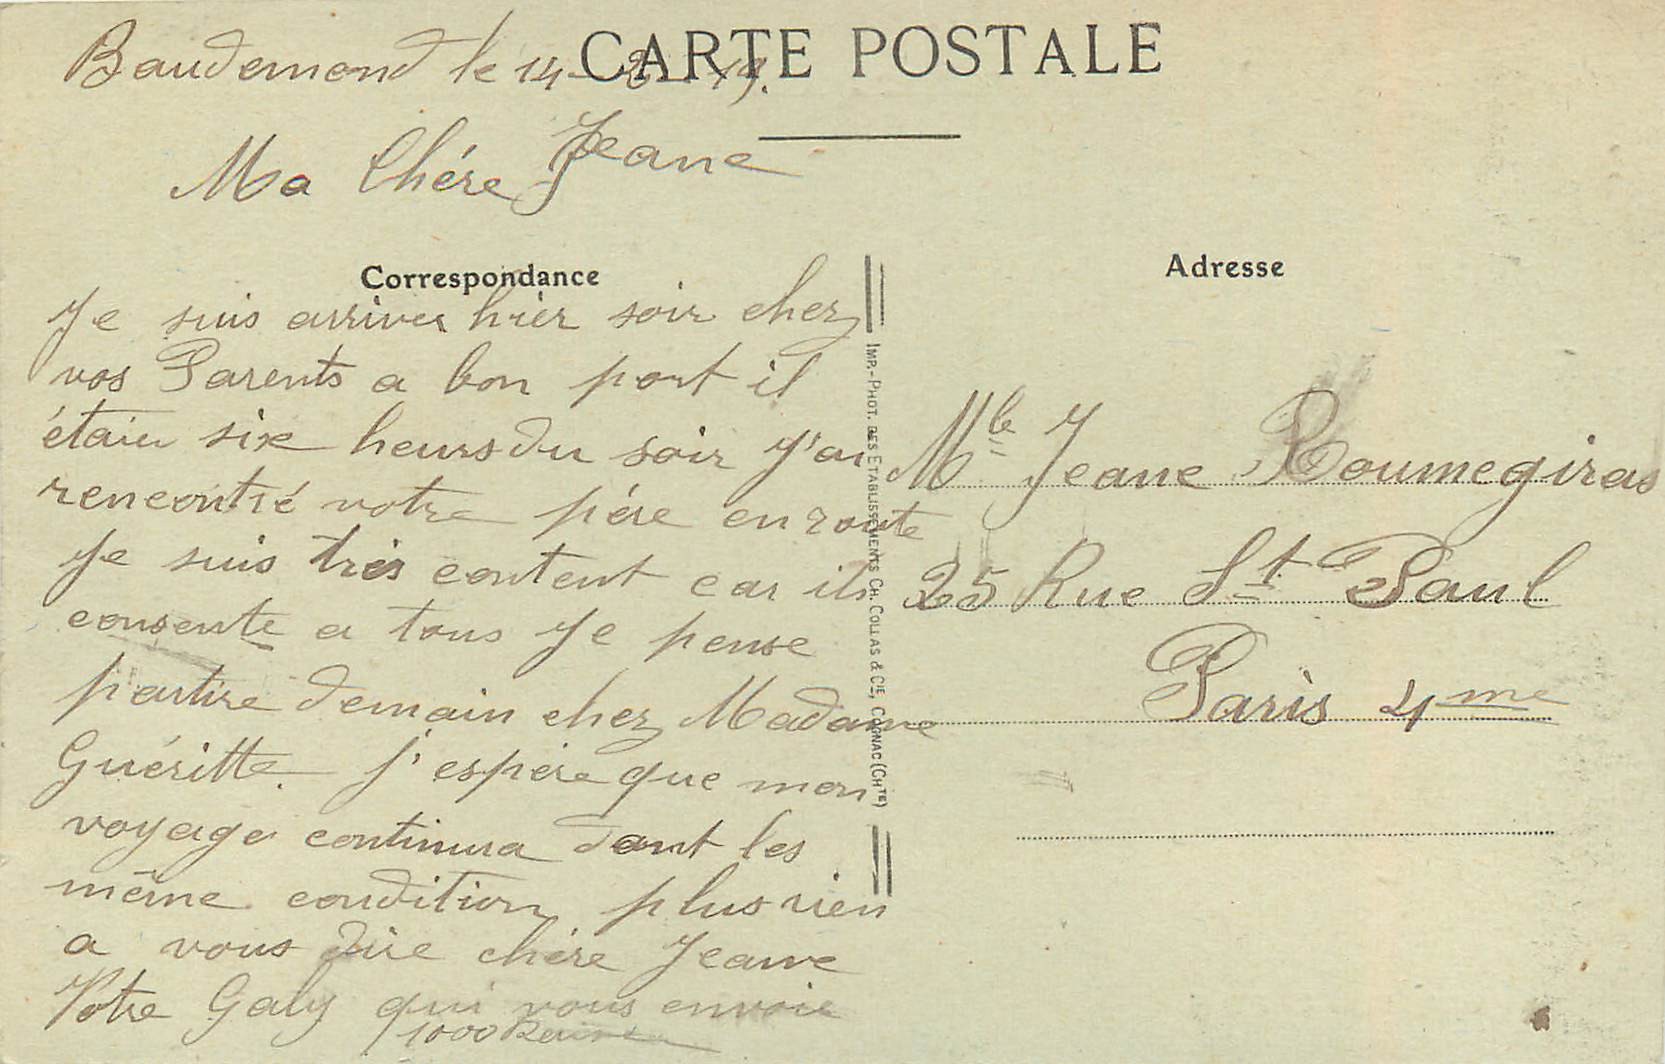 CARTE POSTALE
Baudemond le 14-8-19.
Ma Chére Jeane
Correspondance
Je suis arriver hier soir chez
vos Parents a bon port il
étaier six heurs du soir J'ai
rencontré votre pére en route
Je suis très content car ils
consente a tous Je pense
partire demain chez Madame
Guéritte. J'espére que mon
voyage continura dant les
même condition plus rien
a vous dire chére Jeanne
Votre Galy qui vous envoie
1000
IMP.-PHOT. DES ETABLISSEMENTS CH. COLLAS & CIE, COGNAC (CHTE)
Adresse
Mle Jeane Roumegiras
25 Rue St Paul
Paris 4me